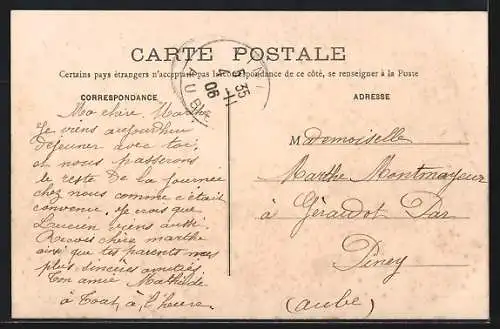 CARTE POSTALE
Certains pays étrangers n'acceptant pas la correspondance de ce côté, se renseigner à la Poste
CORRESPONDANCE
ADRESSE
Ma chère Marthe
Je viens aujourd'hui
déjeuner avec toi,
et nous passerons
le reste De la journée
chez nous comme c'était
convenu. Je crois que
Lucien viens aussi.
Reçois chère marthe
ainsi que tes parents mes
plus sincères amitiés.
Ton amie Mathilde
à Tout, à, l'heure.
Mademoiselle
Marthe Montmayeur
à Gérardot Par
Piney
(aube)
35
06
AUB